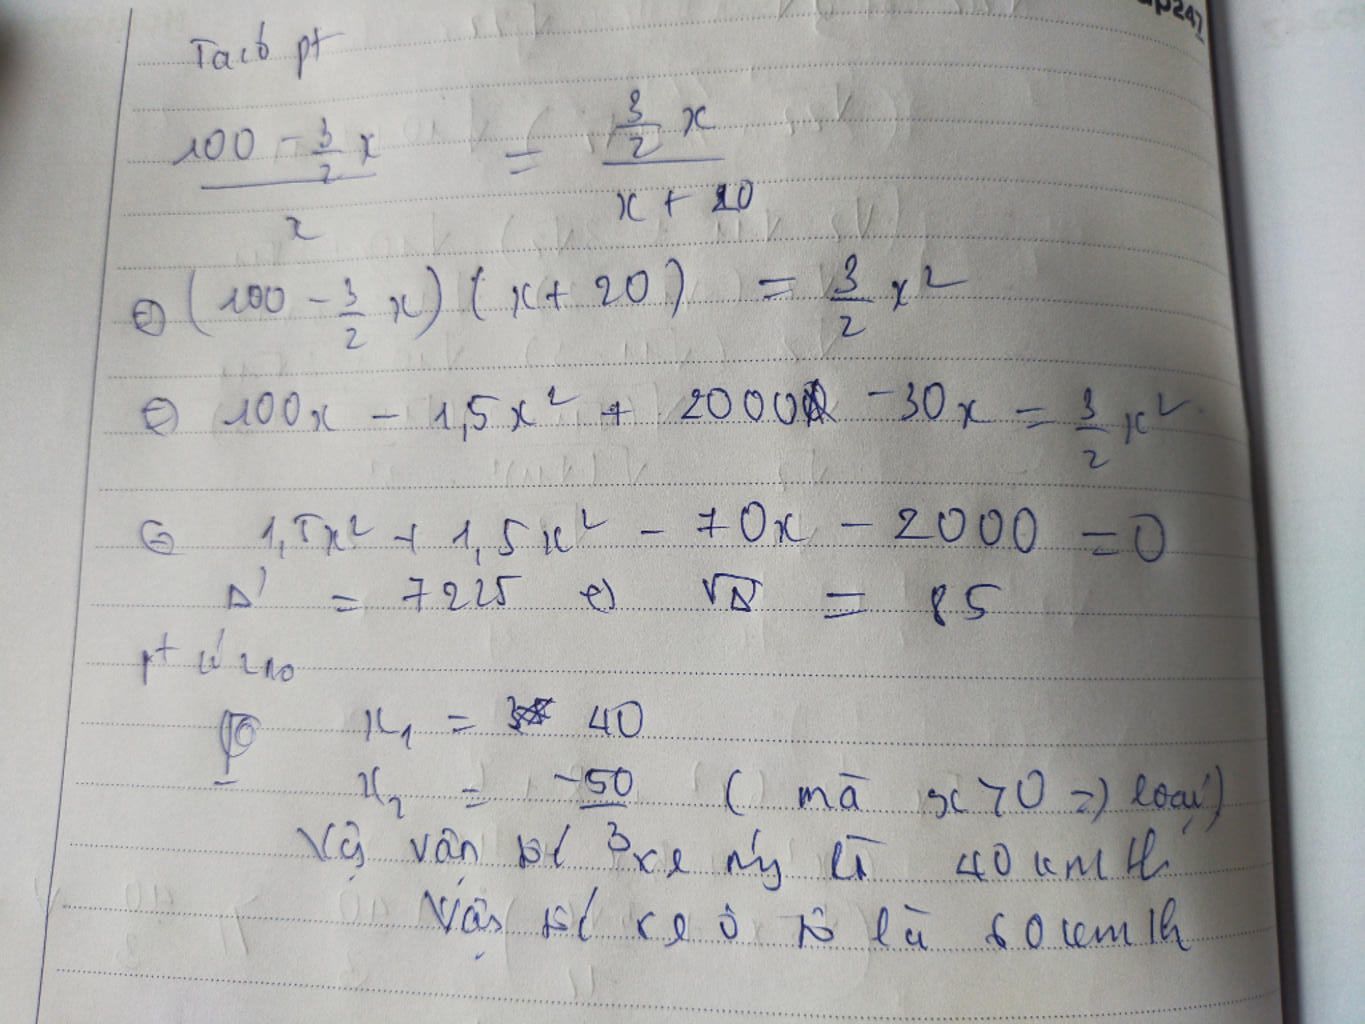 ap247
Ta có pt
(100 - 3/2 x)/x = (3/2 x)/(x + 20)
⇔ (100 - 3/2 x) (x + 20) = 3/2 x²
⇔ 100x - 1,5x² + 2000 - 30x = 3/2 x²
⇔ 1,5x² + 1,5x² - 70x - 2000 = 0
Δ' = 7225 ⇔ √Δ = 85
pt có 2 no
x₁ = 40
x₂ = -50 ( mà x > 0 ⇒ loại )
Vậy vận tốc xe máy là 40 km/h
Vận tốc xe ô tô là 60 km/h